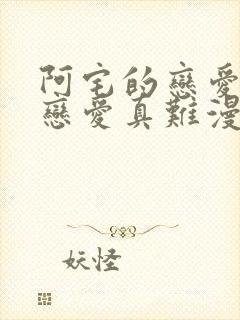 阿宅的戀愛
戀愛真難漫
妖怪